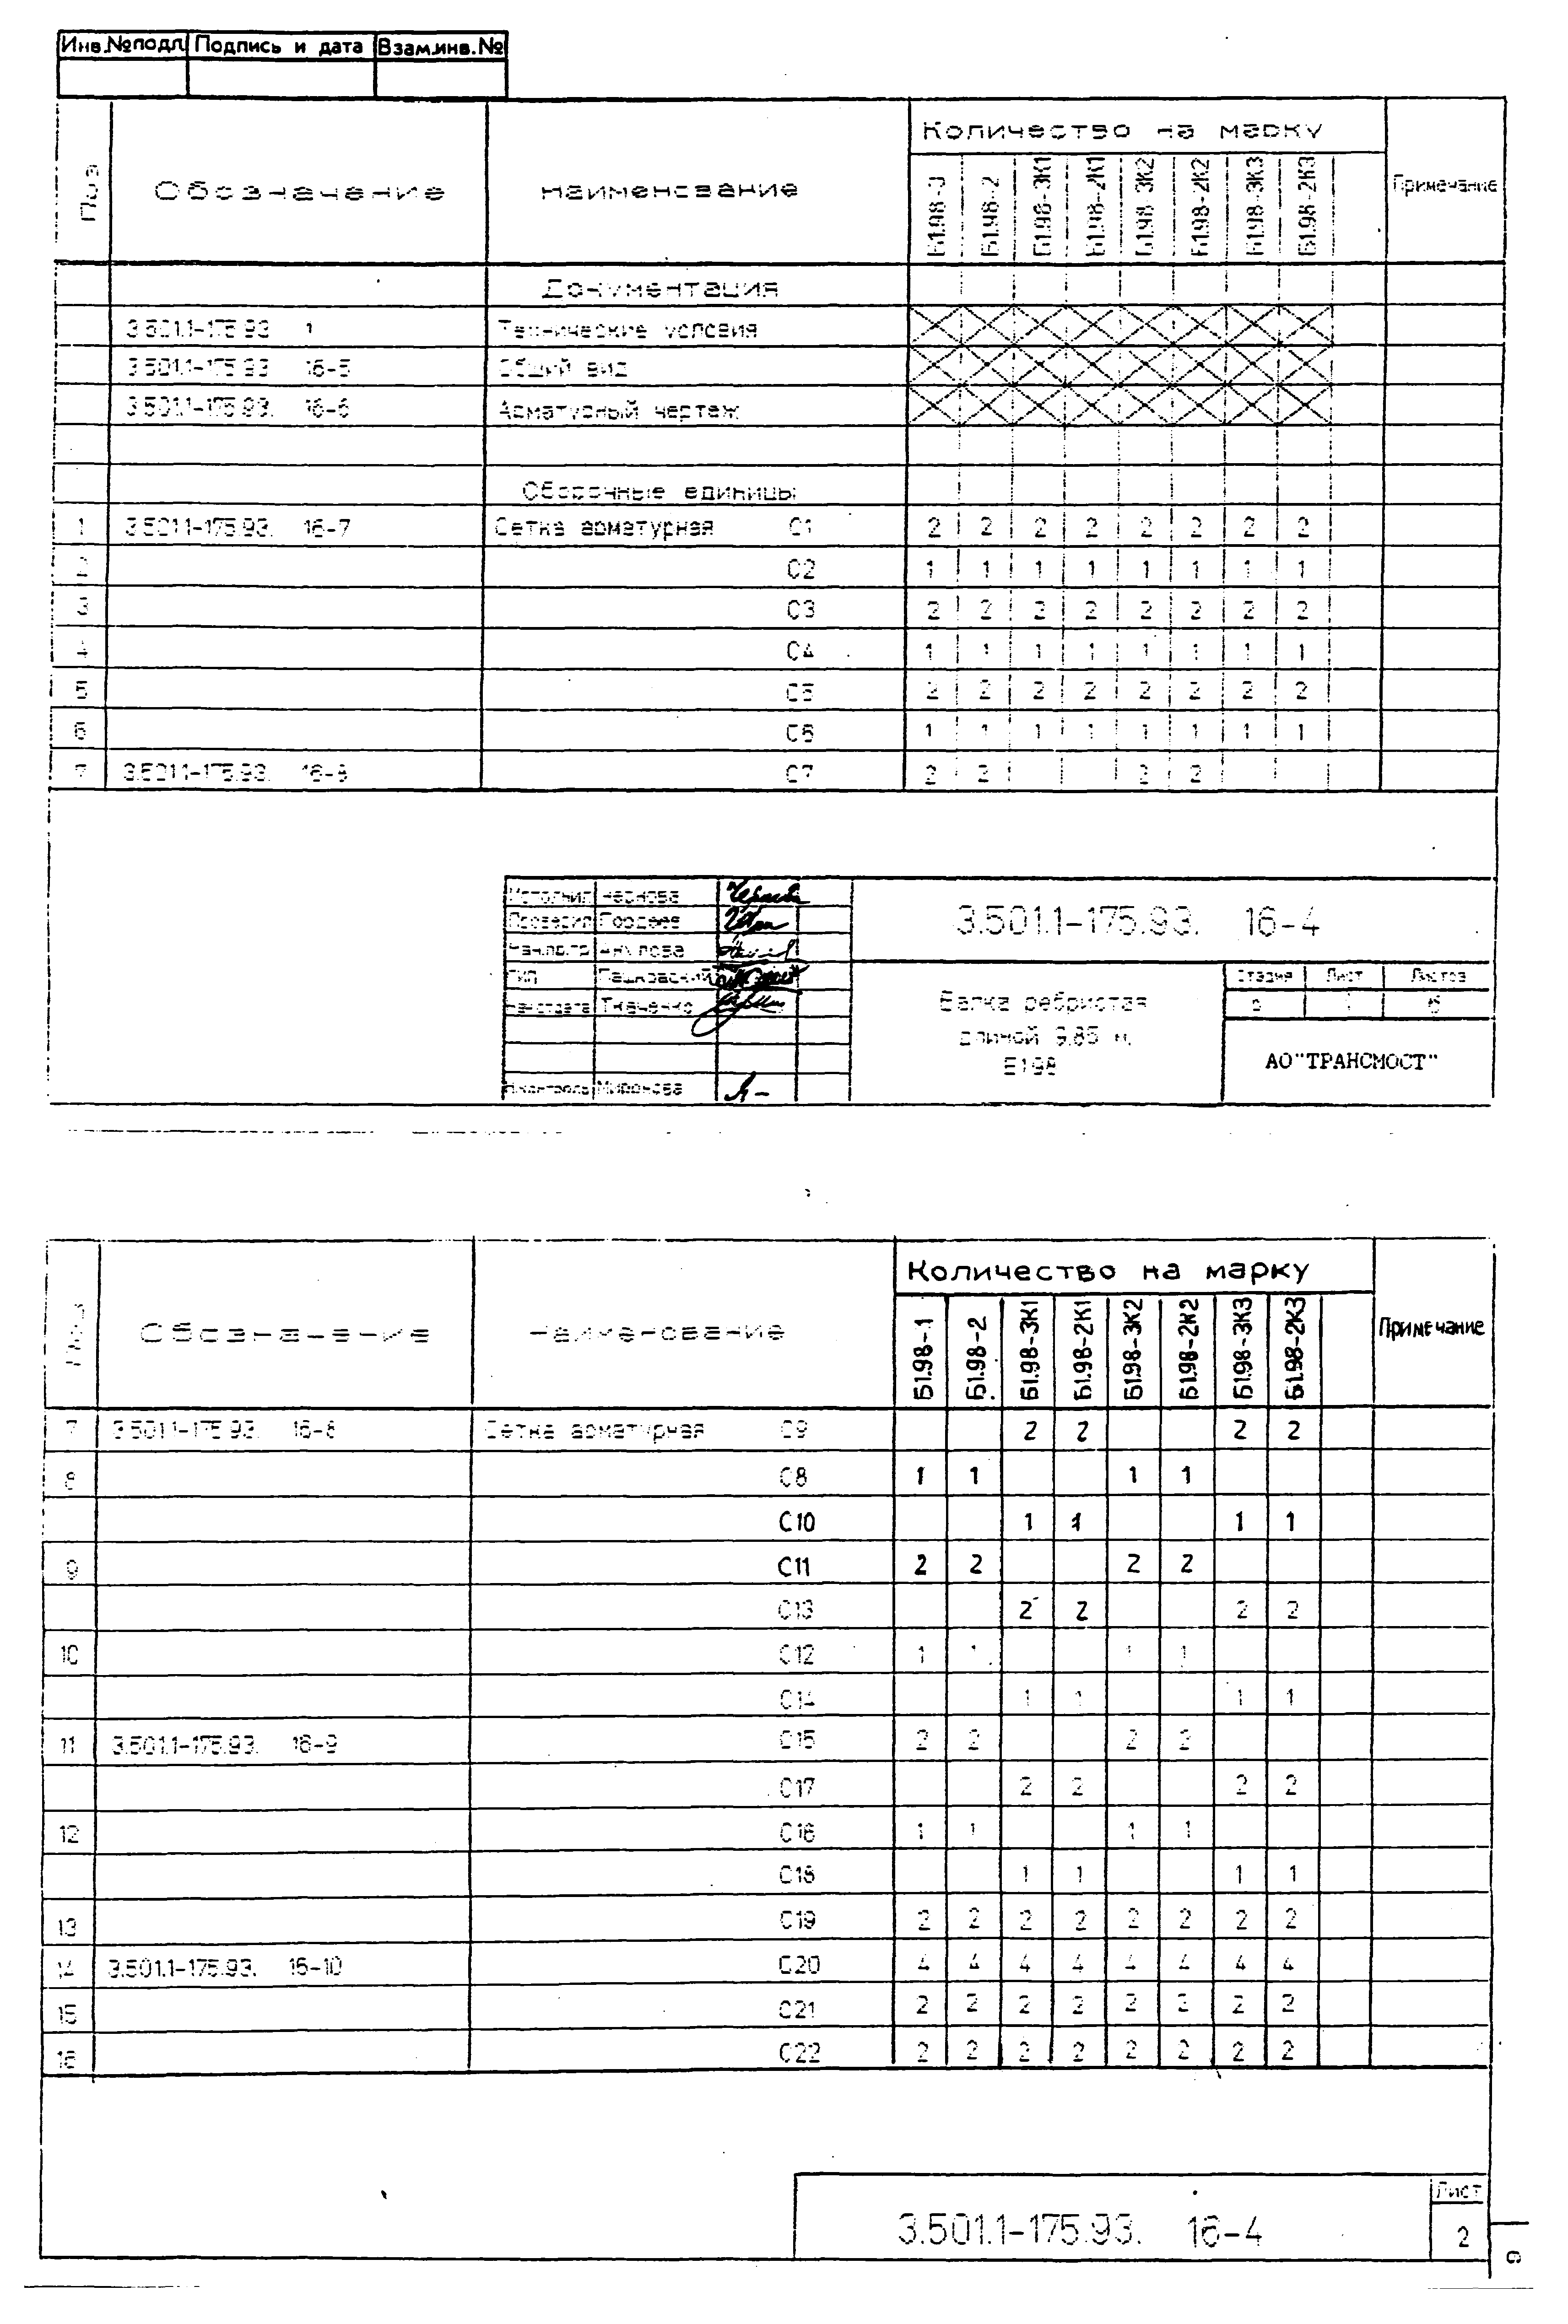 Инв.№подл Подпись и дата Взам.инв.№
Поз Обозначение Наименование Количество на марку Примечание
Б1.98-2 Б1.98-3К1 Б1.98-2К1 Б1.98-3К2 Б1.98-2К2 Б1.98-3К3 Б1.98-2К3
Документация
3.501.1-175.93 1 Технические условия
3.501.1-175.93 16-5 Общий вид
3.501.1-175.93. 16-6 Арматурный чертеж
Сборочные единицы
1 3.501.1-175.93. 16-7 Сетка арматурная С1 2 2 2 2 2 2 2 2
2 С2 1 1 1 1 1 1 1 1
3 С3 2 2 2 2 2 2 2 2
4 С4 1 1 1 1 1 1 1 1
5 С5 2 2 2 2 2 2 2 2
6 С6 1 1 1 1 1 1 1 1
7 3.501.1-175.93. 16-8 С7 2 2 2 2
Исполнил Чернова
Проверил Гордеев
Нач.пр.гр Акулова
ГИП Пашковский
Нач.отдела Ткаченко
Н.контроль Миронова
3.501.1-175.93. 16-4
Балка ребристая
длиной 9.85 м.
Б198
Стадия Лист Листов
Р 1 6
АО"ТРАНСМОСТ"
Поз Обозначение Наименование Количество на марку Примечание
Б1.98-1 Б1.98-2 Б1.98-3К1 Б1.98-2К1 Б1.98-3К2 Б1.98-2К2 Б1.98-3К3 Б1.98-2К3
7 3.501.1-175.93. 16-8 Сетка арматурная С9 2 2 2 2
8 С8 1 1 1 1
С10 1 1 1 1
9 С11 2 2 2 2
С13 2 2 2 2
10 С12 1 1 1 1
С14 1 1 1 1
11 3.501.1-175.93. 16-9 С15 2 2 2 2
С17 2 2 2 2
12 С16 1 1 1 1
С18 1 1 1 1
13 С19 2 2 2 2 2 2 2 2
14 3.501.1-175.93. 16-10 С20 4 4 4 4 4 4 4 4
15 С21 2 2 2 2 2 2 2 2
16 С22 2 2 2 2 2 2 2 2
3.501.1-175.93. 16-4
Лист
2
9